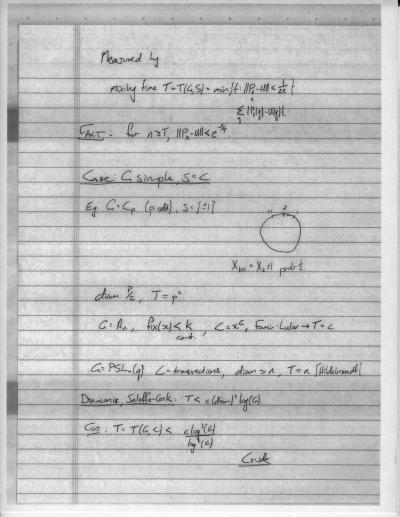 Measured by
mixing time T = T(G,S) = min{t: ||P_t - U|| < 1/2e}
Σ |P_t(g) - U(g)|
FACT: for n ≥ T, ||P_n - U|| < e^
Case: G simple, S = C
Eg G = C_p (p odd), S = {±1}
X_{k+1} = X_k ± 1 prob ½
diam p/2, T = p²
G = A_n, fix(x) < k const., C = x^G, → T = c
G = PSL_n(q) C = transvections, diam ≍ n, T ≍ n [Hildebrand]
Diaconis, Saloff-Coste: T < c(diam)² log|G|
Cor. T = T(G,C) < c log³|G| / log²|C|
Crude